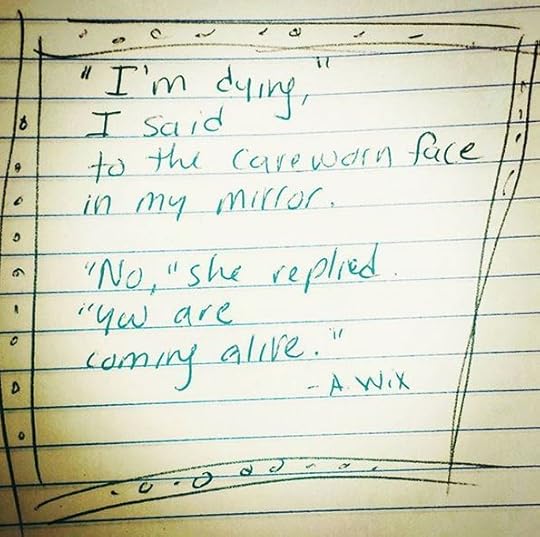 "I'm dying,"
I said
to the careworn face
in my mirror.
"No," she replied.
"You are
coming alive."
- A. Wix